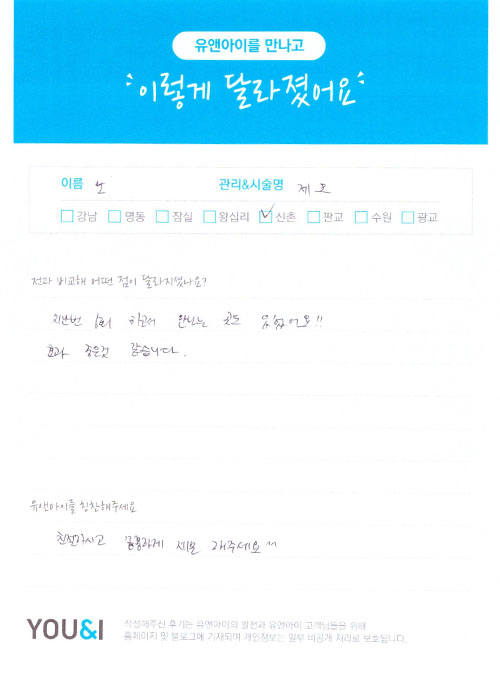 유앤아이를 만나고
이렇게 달라졌어요
이름 노 관리&시술명 제모
강남 명동 잠실 왕십리 신촌 판교 수원 광교
전과 비교해 어떤 점이 달라지셨나요?
지난번 1회 하고서 안나는 곳도 있었어요!!
효과 좋은것 같습니다.
유앤아이를 칭찬해주세요
친절하시고 꼼꼼하게 제모 해주세요^^
YOU&I
작성해주신 후기는 유앤아이의 발전과 유앤아이 고객님들을 위해
홈페이지 및 블로그에 기재되며 개인정보는 일부 비공개 처리로 보호됩니다.